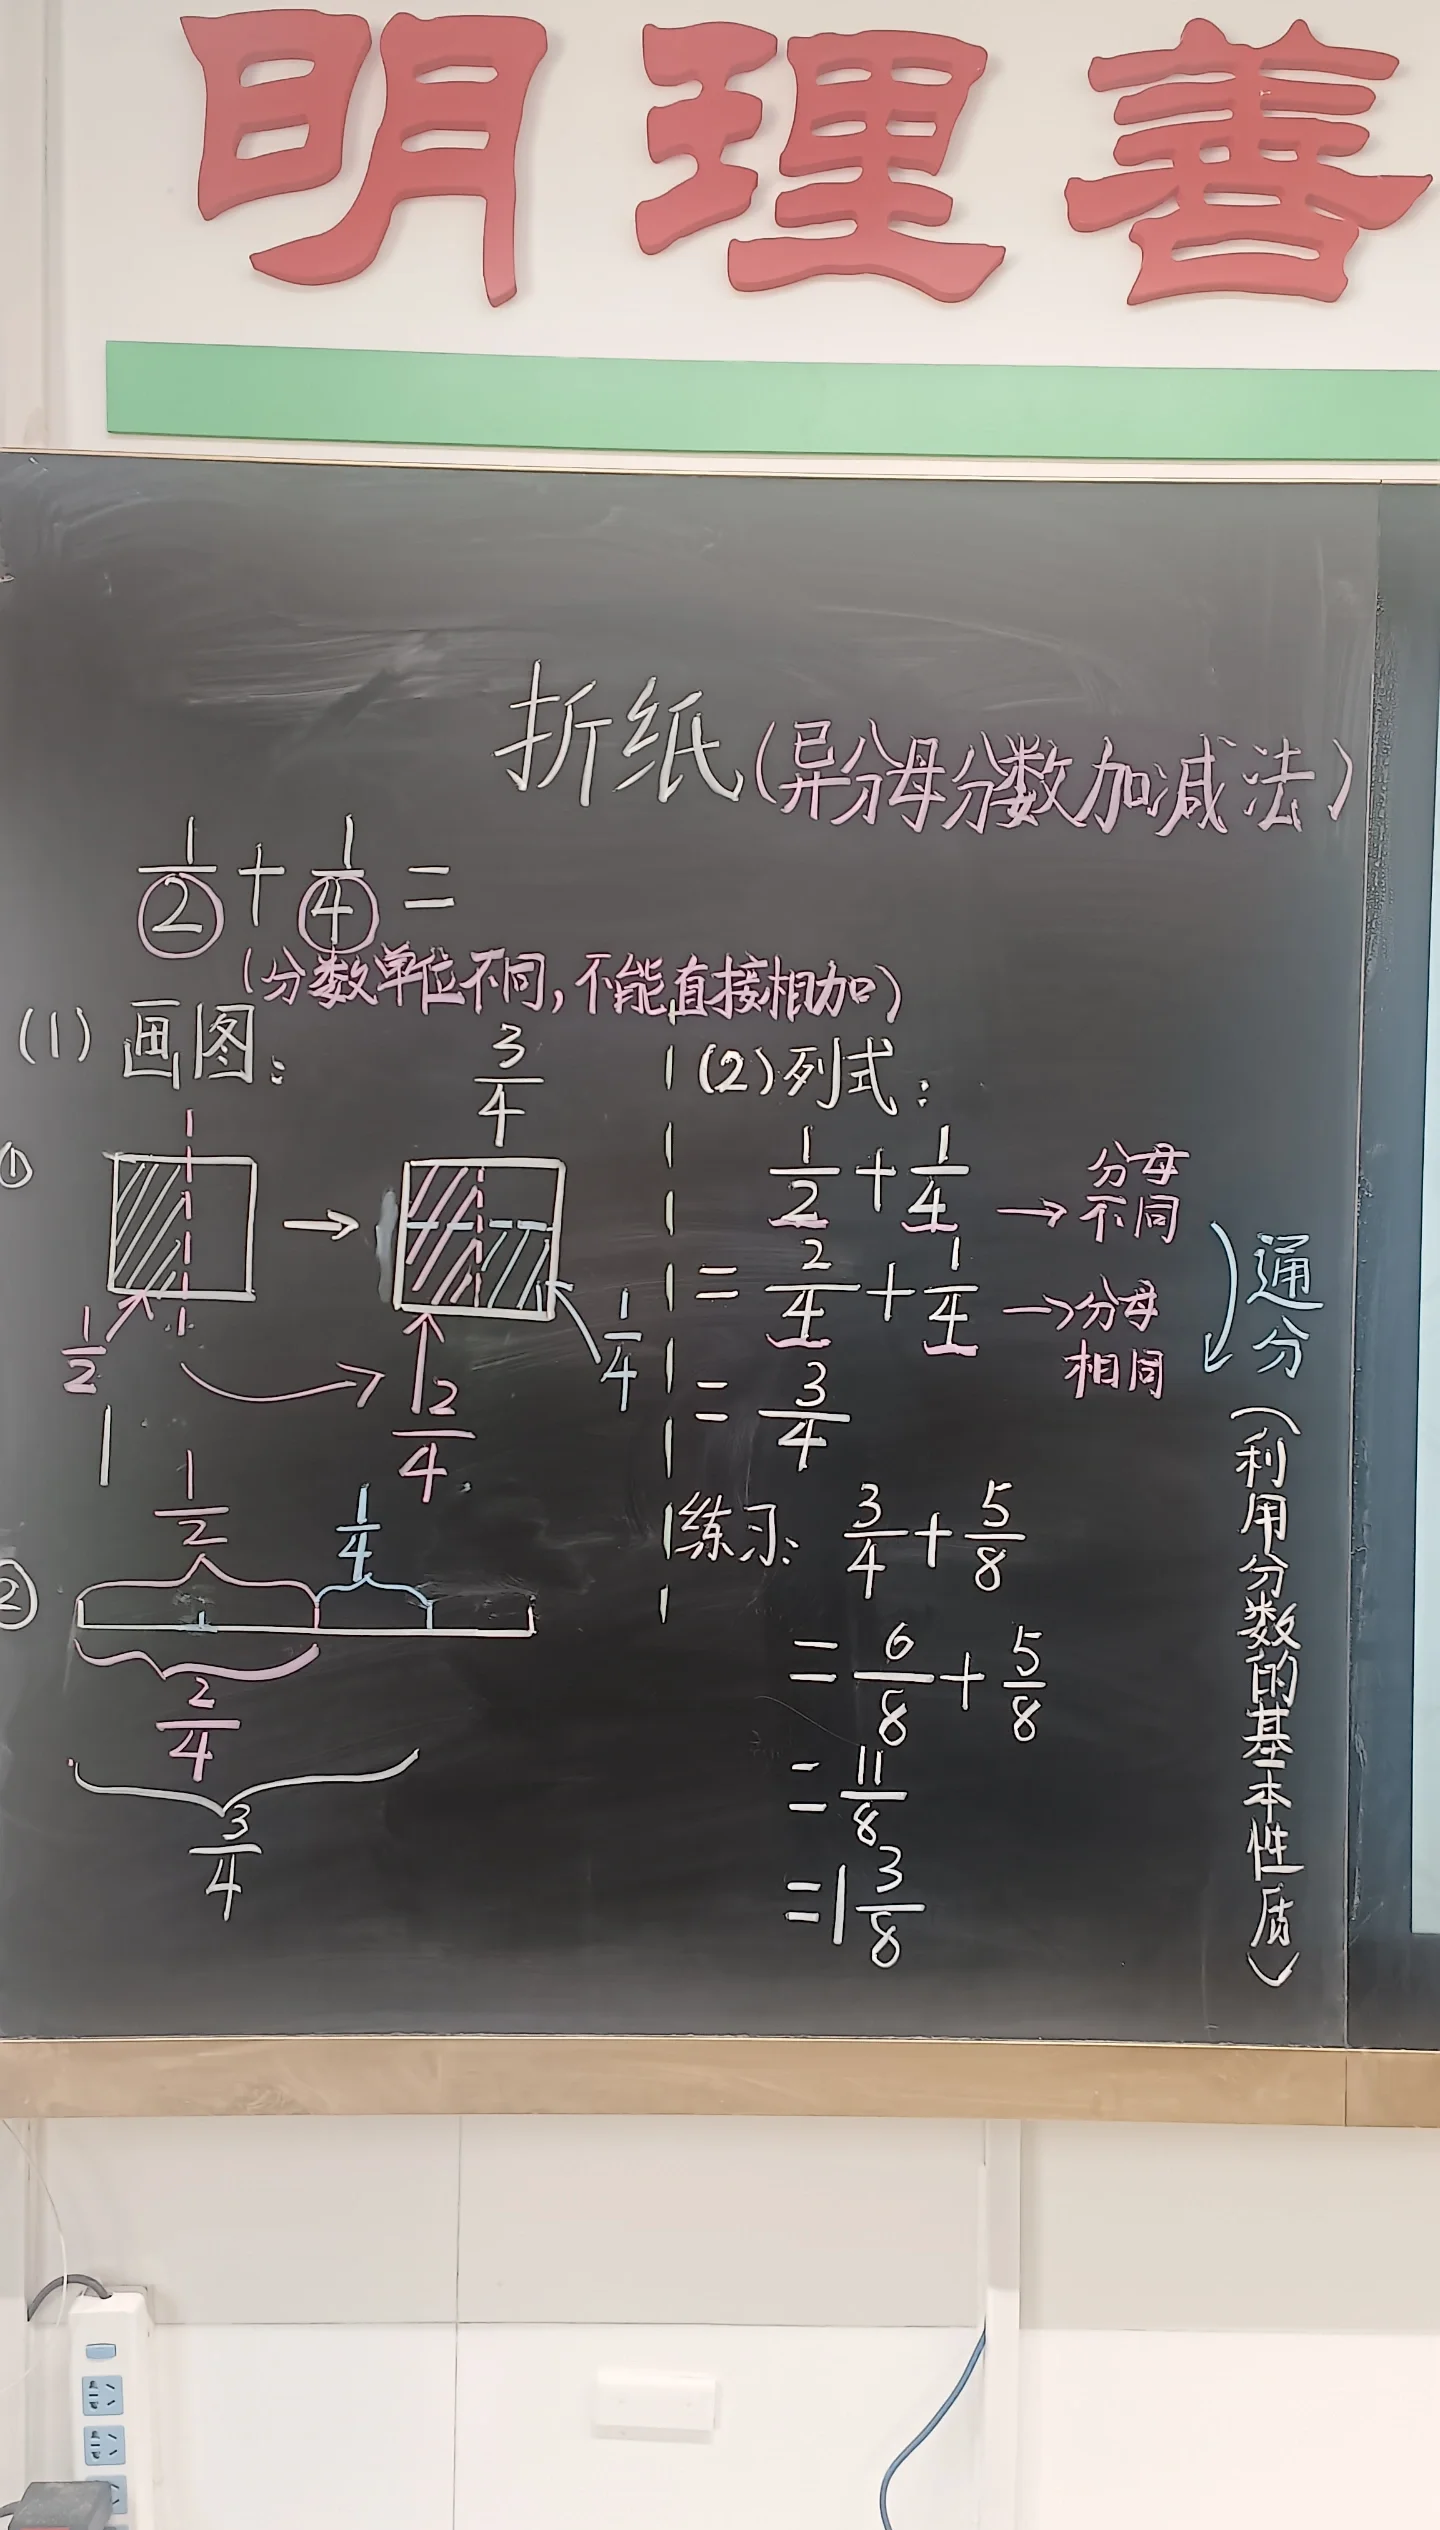 明理善
折纸(异分母分数加减法)
1/2 + 1/4 =
(分数单位不同,不能直接相加)
(1) 画图:
①
1/2
3/4
2/4
1/4
②
1/2
1/4
2/4
3/4
(2) 列式:
1/2 + 1/4 → 分母不同
= 2/4 + 1/4 → 分母相同
= 3/4
通分(利用分数的基本性质)
练习: 3/4 + 5/8
= 6/8 + 5/8
= 11/8
= 1 3/8